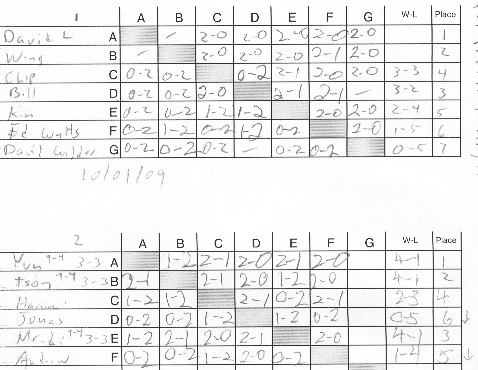 1 A B C D E F G W-L Place
David L A – 2-0 2-0 2-0 2-0 2-0 1
Wing B – 2-0 2-0 2-0 2-1 2-0 2
Chip C 0-2 0-2 0-2 2-1 2-0 2-0 3-3 4
Bill D 0-2 0-2 2-0 2-1 2-1 – 3-2 3
Ken E 0-2 0-2 1-2 1-2 2-0 2-0 2-4 5
Ed Watts F 0-2 1-2 0-2 1-2 0-2 2-0 1-5 6
David G 0-2 0-2 0-2 – 0-2 0-2 0-5 7
10/01/09
2 A B C D E F G W-L Place
9-4 3-3 A 1-2 2-1 2-0 2-1 2-0 4-1 1
9-4 3-3 B 2-1 2-1 2-0 1-2 2-0 4-1 2
C 1-2 1-2 2-1 0-2 2-1 2-3 4
Jonas D 0-2 0-2 1-2 1-2 0-2 0-5 6 ↓
9-4 3-3 E 1-2 2-1 2-0 2-1 2-0 4-1 3
Andrew F 0-2 0-2 1-2 2-0 0-2 1-4 5 ↓